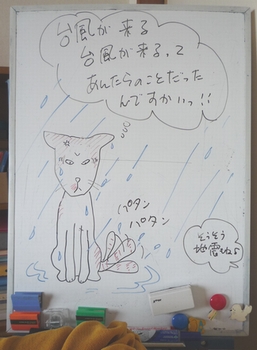 台風が来る
台風が来るって
あんたらのことだった
んですかいっ!!
パタン
パタン
そうそう
地震もね♪